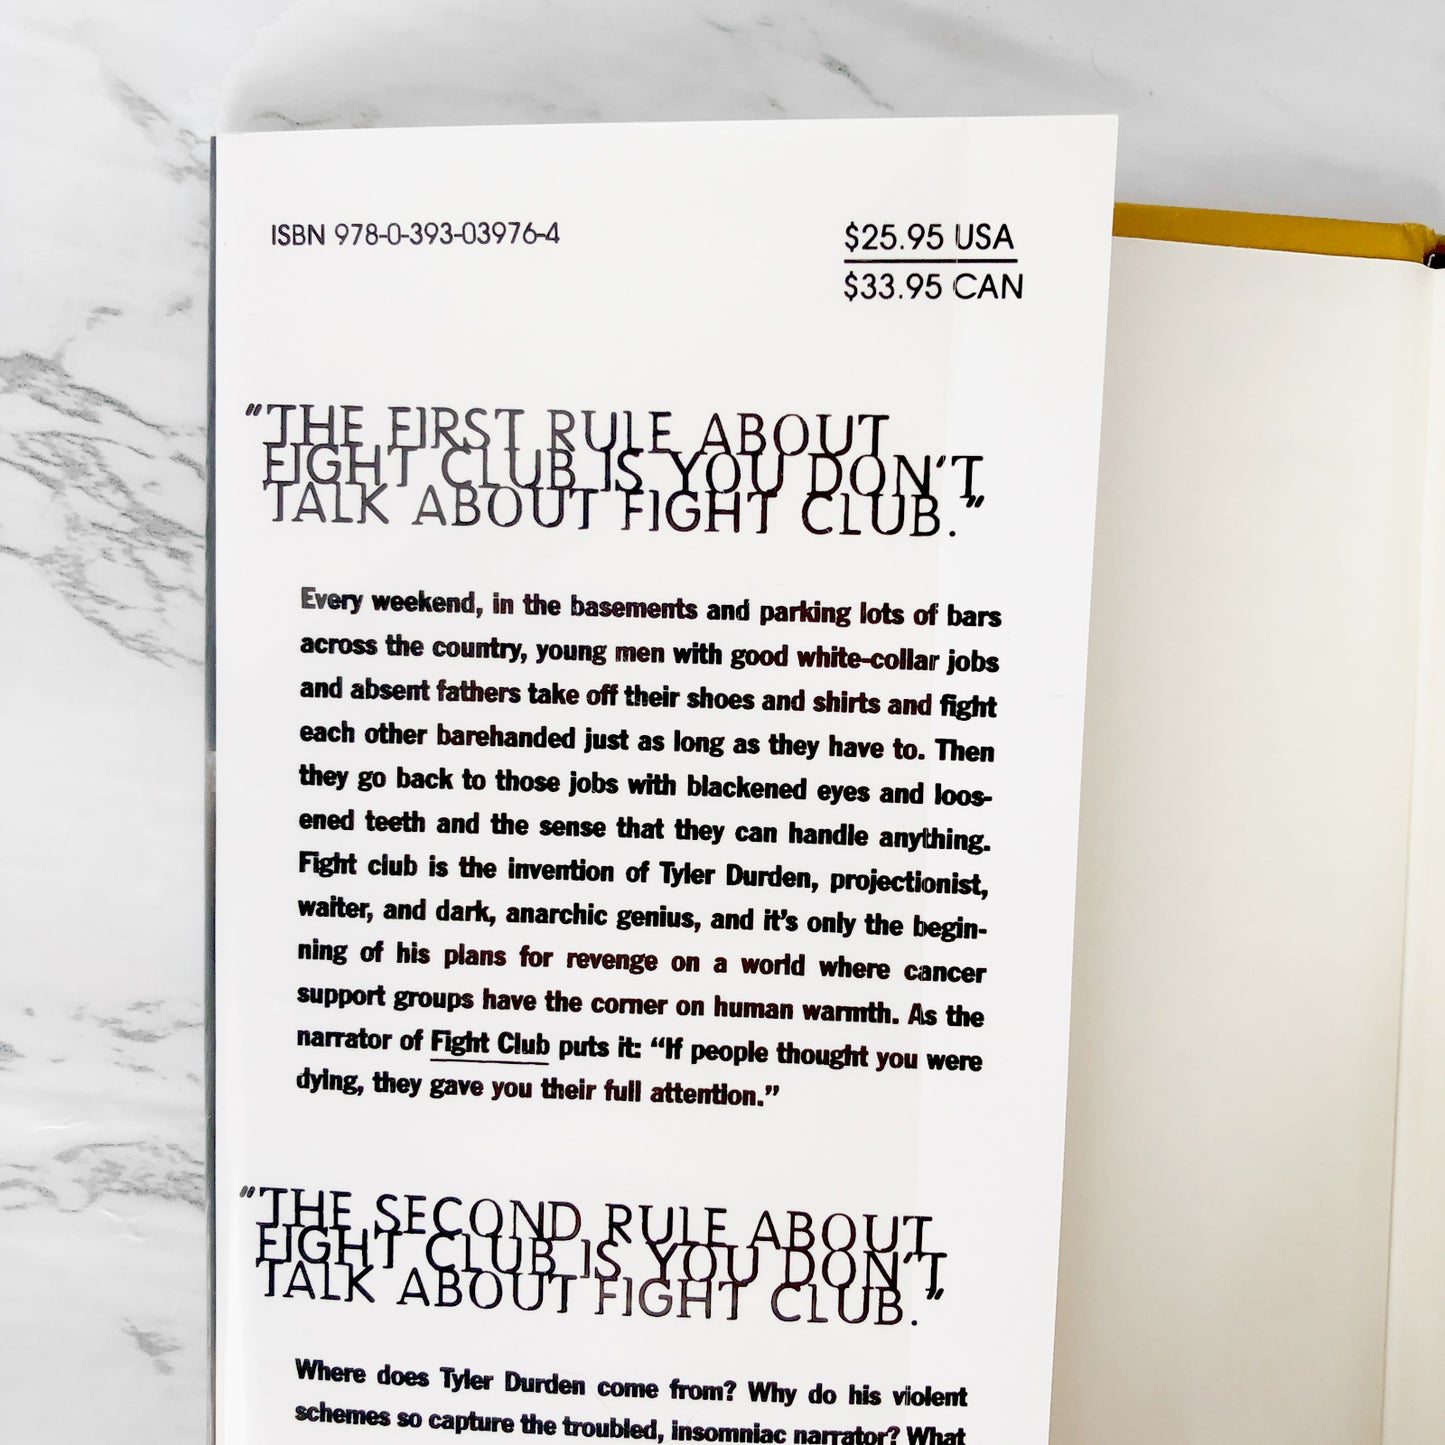 ISBN 978-0-393-03976-4
$25.95 USA
$33.95 CAN
"THE FIRST RULE ABOUT
FIGHT CLUB IS YOU DON'T
TALK ABOUT FIGHT CLUB."
Every weekend, in the basements and parking lots of bars
across the country, young men with good white-collar jobs
and absent fathers take off their shoes and shirts and fight
each other barehanded just as long as they have to. Then
they go back to those jobs with blackened eyes and loos-
ened teeth and the sense that they can handle anything.
Fight club is the invention of Tyler Durden, projectionist,
waiter, and dark, anarchic genius, and it's only the begin-
ning of his plans for revenge on a world where cancer
support groups have the corner on human warmth. As the
narrator of Fight Club puts it: "If people thought you were
dying, they gave you their full attention."
"THE SECOND RULE ABOUT
FIGHT CLUB IS YOU DON'T
TALK ABOUT FIGHT CLUB."
Where does Tyler Durden come from? Why do his violent
schemes so capture the troubled, insomniac narrator? What